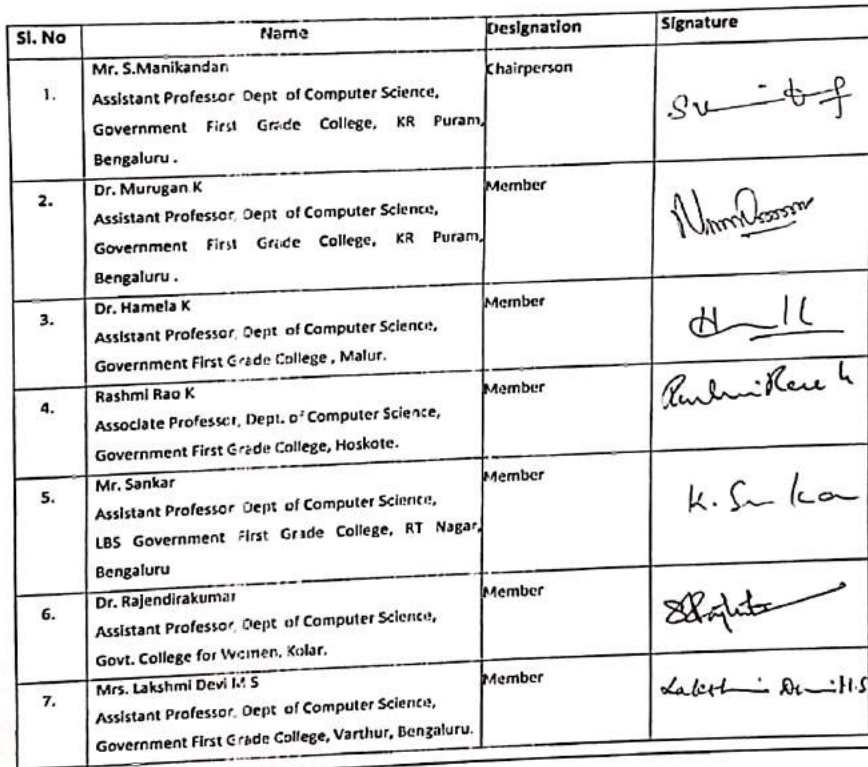 Sl. No Name Designation Signature
1. Mr. S.Manikandan Chairperson
Assistant Professor, Dept of Computer Science,
Government First Grade College, KR Puram,
Bengaluru .
2. Dr. Murugan K Member
Assistant Professor, Dept of Computer Science,
Government First Grade College, KR Puram,
Bengaluru .
3. Dr. Hamela K Member
Assistant Professor, Dept of Computer Science,
Government First Grade College , Malur.
4. Rashmi Rao K Member
Associate Professor, Dept. of Computer Science,
Government First Grade College, Hoskote.
5. Mr. Sankar Member
Assistant Professor Dept of Computer Science,
LBS Government First Grade College, RT Nagar,
Bengaluru
6. Dr. Rajendirakumar Member
Assistant Professor, Dept of Computer Science,
Govt. College for Women, Kolar.
7. Mrs. Lakshmi Devi M S Member
Assistant Professor, Dept of Computer Science,
Government First Grade College, Varthur, Bengaluru.